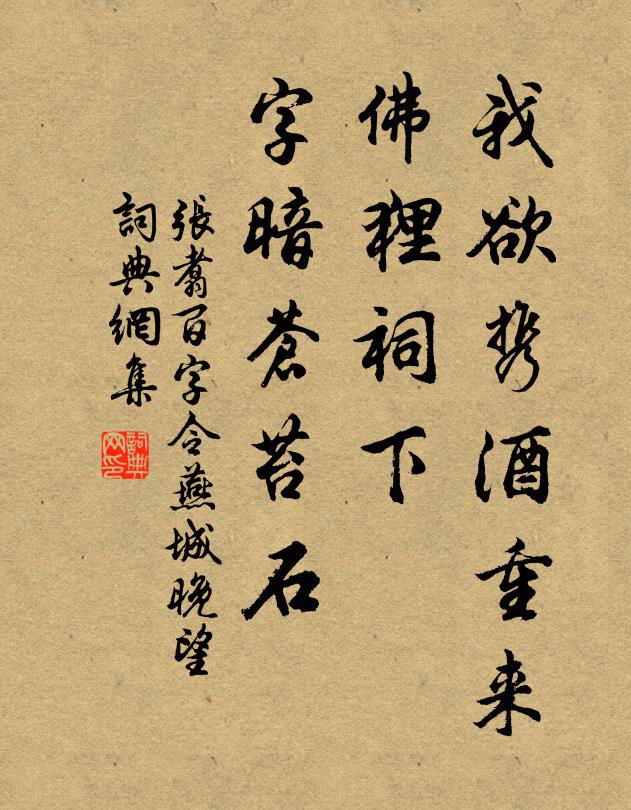 我欲携酒重来
佛狸祠下
字暗蒼苔石
張翥百字令蕪城晚望
詞典網集
詞典网印